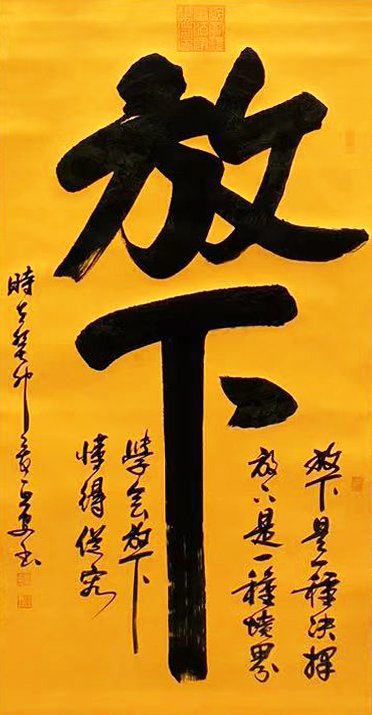 放下
放下是一種決擇
放下是一種境界
學会放下
懂得從容
時在癸卯